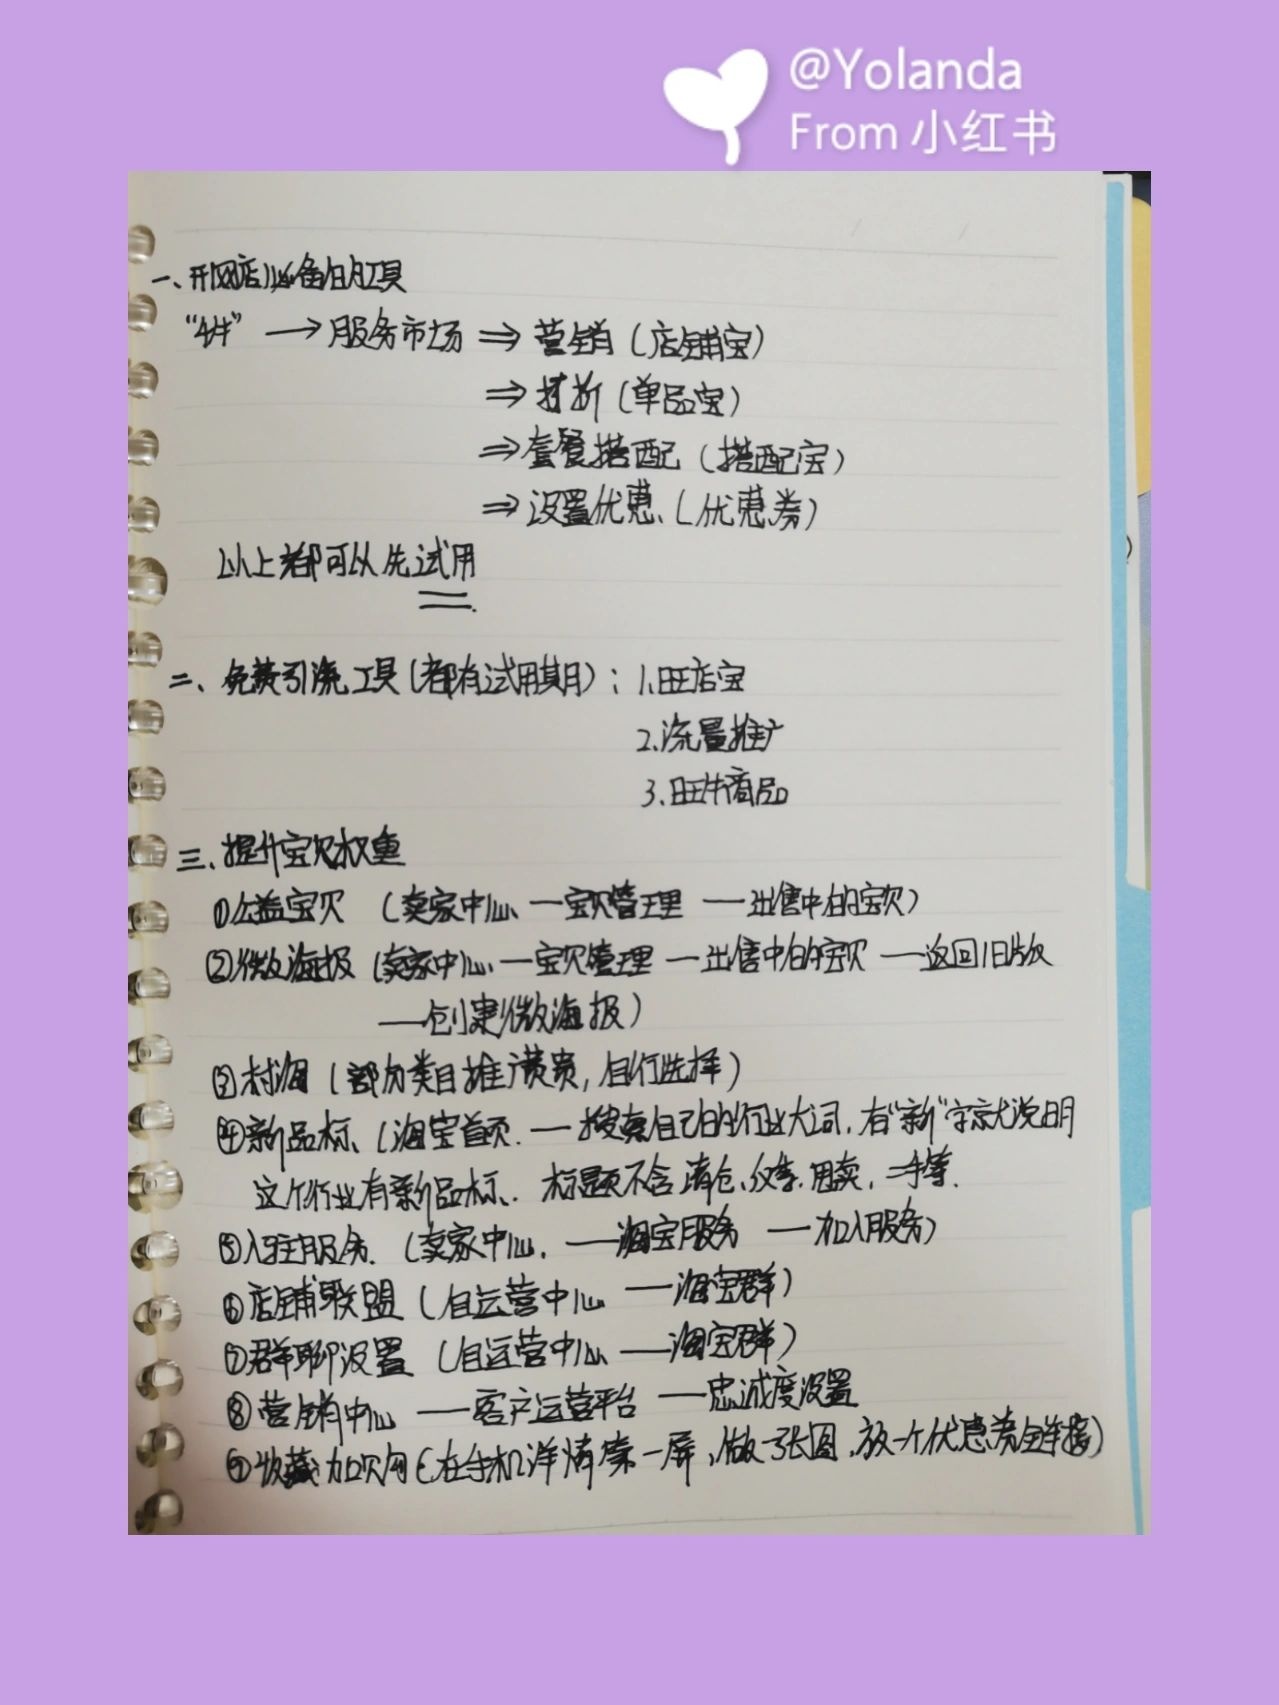 @Yolanda
From 小红书
一、开网店必备的工具
“4件” → 服务市场 ⇒ 营销(店铺宝)
⇒ 打折(单品宝)
⇒ 套餐搭配(搭配宝)
⇒ 设置优惠、(优惠券)
以上都可以先试用
二、免费引流工具(都有试用期):1.旺店宝
2.流量推广
3.旺牛商品
三、提升宝贝权重
①公益宝贝 (卖家中心 — 宝贝管理 — 出售中的宝贝)
②微海报 (卖家中心 — 宝贝管理 — 出售中的宝贝 — 返回旧版
— 创建微海报)
③村淘 (部分类目推广费贵,自行选择)
④新品标、(淘宝首页. — 搜索自己的行业大词,有“新”字就说明
这个行业有新品标、标题不含清仓、仅售、甩卖、二手等.
⑤入驻服务. (卖家中心. — 淘宝服务 — 加入服务)
⑥店铺联盟 (自运营中心 — 淘宝群)
⑦群聊设置 (自运营中心 — 淘宝群)
⑧营销中心 — 客户运营平台 — 忠诚度设置
⑨收藏加购(在手机详情第一屏,做一张图,放一个优惠券链接)